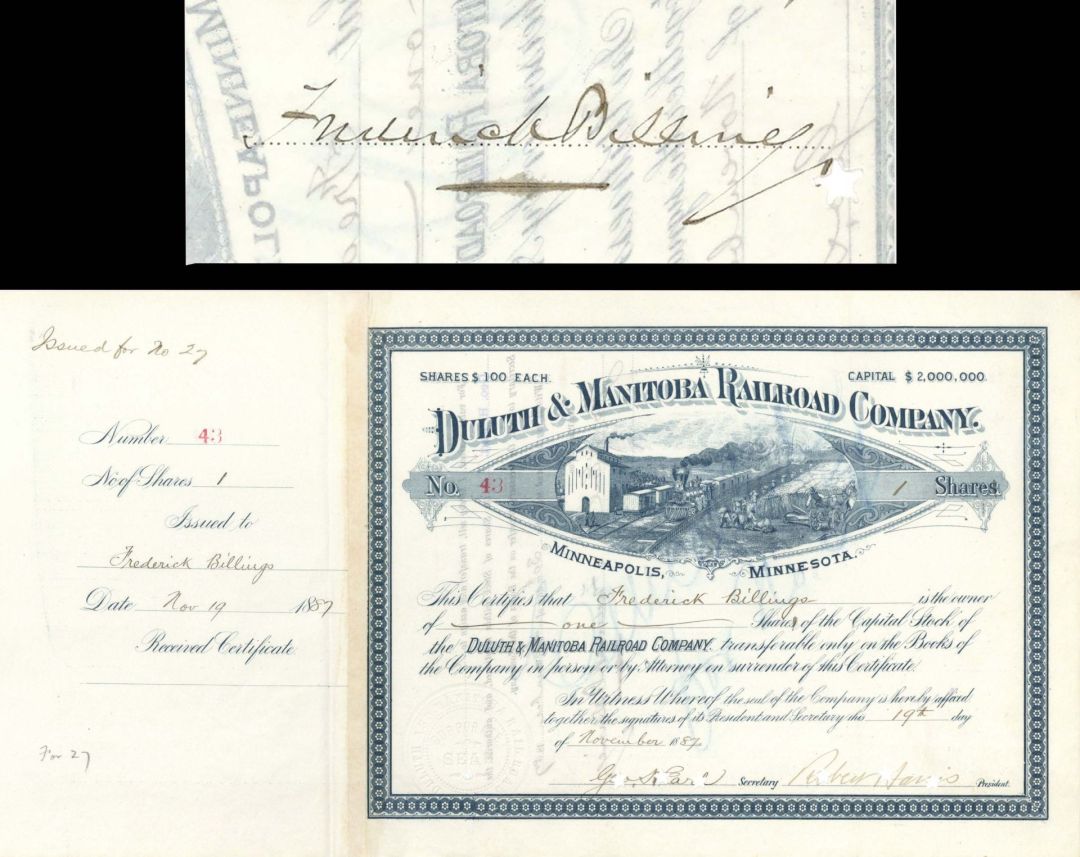 Frederick Billings
Issued for No 27
Number 43
No of Shares 1
Issued to
Frederick Billings
Date Nov 19 1887
Received Certificate
For 27
SHARES $ 100 EACH. CAPITAL $ 2,000,000.
DULUTH & MANITOBA RAILROAD COMPANY.
No. 43 1 Shares
MINNEAPOLIS, MINNESOTA.
This Certifies that Frederick Billings is the owner
of one Shares of the Capital Stock of
the DULUTH & MANITOBA RAILROAD COMPANY. transferable only on the Books of
the Company in person or by Attorney on surrender of this Certificate.
In Witness Whereof the seal of the Company is hereby affixed
together the signatures of its President and Secretary this 19th day
of November 1887.
Secretary Robert Harris President.